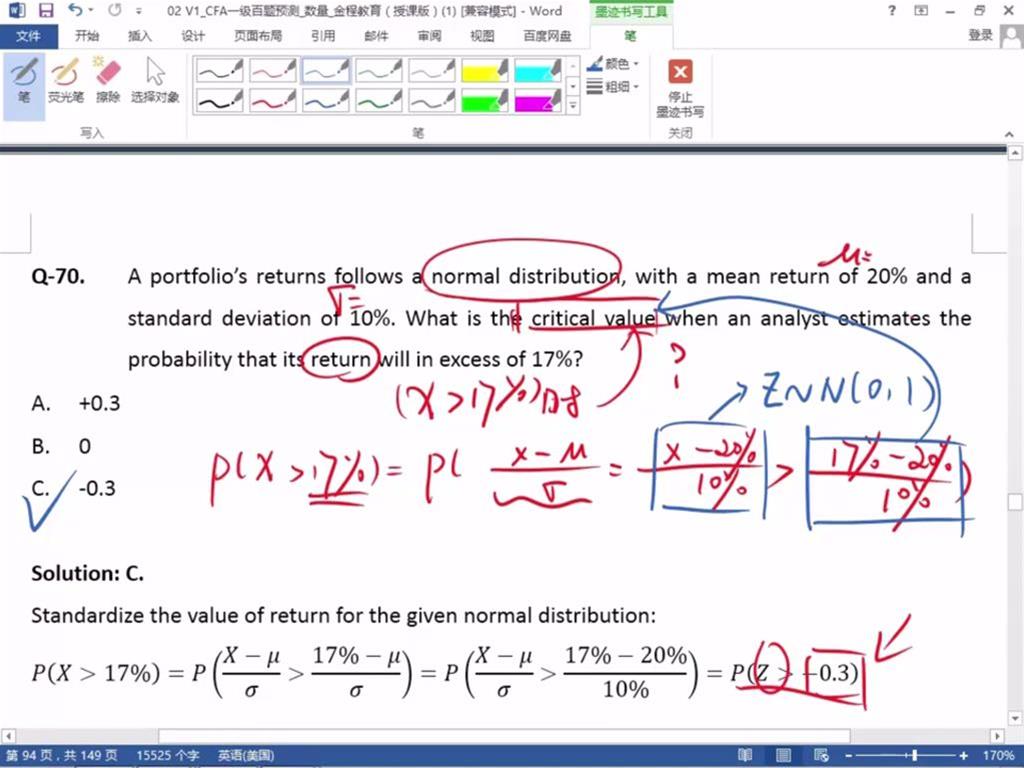 02 V1_CFA一级百题预测_数量_金程教育（授课版）(1) [兼容模式] - Word
墨迹书写工具
文件 开始 插入 设计 页面布局 引用 邮件 审阅 视图 百度网盘 笔 登录
笔 荧光笔 擦除 选择对象
颜色
粗细
停止
墨迹书写
写入 笔 关闭
μ=
Q-70. A portfolio's returns follows a normal distribution, with a mean return of 20% and a
σ=
standard deviation of 10%. What is the critical value when an analyst estimates the
probability that its return will in excess of 17%?
?
A. +0.3
(X>17%)
Z~N(0,1)
B. 0
P(X>17%)= P( X-μ/σ = X-20%/10% > 17%-20%/10%)
C. -0.3
Solution: C.
Standardize the value of return for the given normal distribution:
P(X > 17%) = P(X − μ/σ > 17% − μ/σ) = P(X − μ/σ > 17% − 20%/10%) = P(Z > −0.3)
第 94 页，共 149 页 15525 个字 英语(美国) 170%